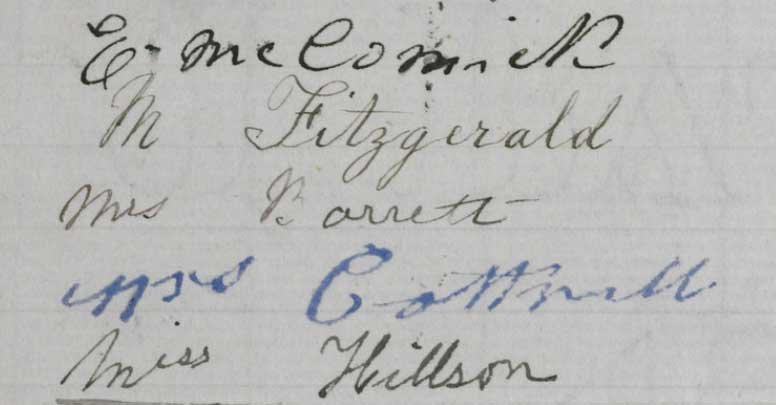 E. McComick
M Fitzgerald
Mrs Barrett
Mrs Cottrell
Miss Hillson